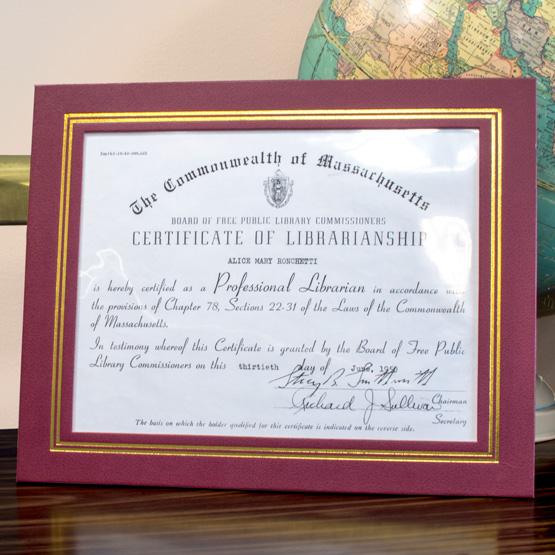 The Commonwealth of Massachusetts
BOARD OF FREE PUBLIC LIBRARY COMMISSIONERS
CERTIFICATE OF LIBRARIANSHIP
ALICE MARY RONCHETTI
is hereby certified as a Professional Librarian in accordance with
the provisions of Chapter 78, Sections 22-31 of the Laws of the Commonwealth
of Massachusetts.
In testimony whereof this Certificate is granted by the Board of Free Public
Library Commissioners on this thirtieth day of June,
Chairman
Richard J. Sullivan
Secretary
The basis on which the holder qualified for this certificate is indicated on the reverse side.